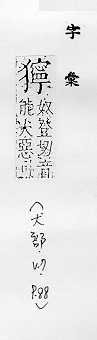 字彙
獰
奴登切音
能犬惡
(犬部. P.88)